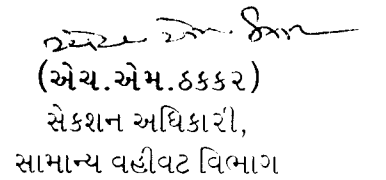 (એચ.એમ.ઠકકર)
સેકશન અધિકારી,
સામાન્ય વહીવટ વિભાગ